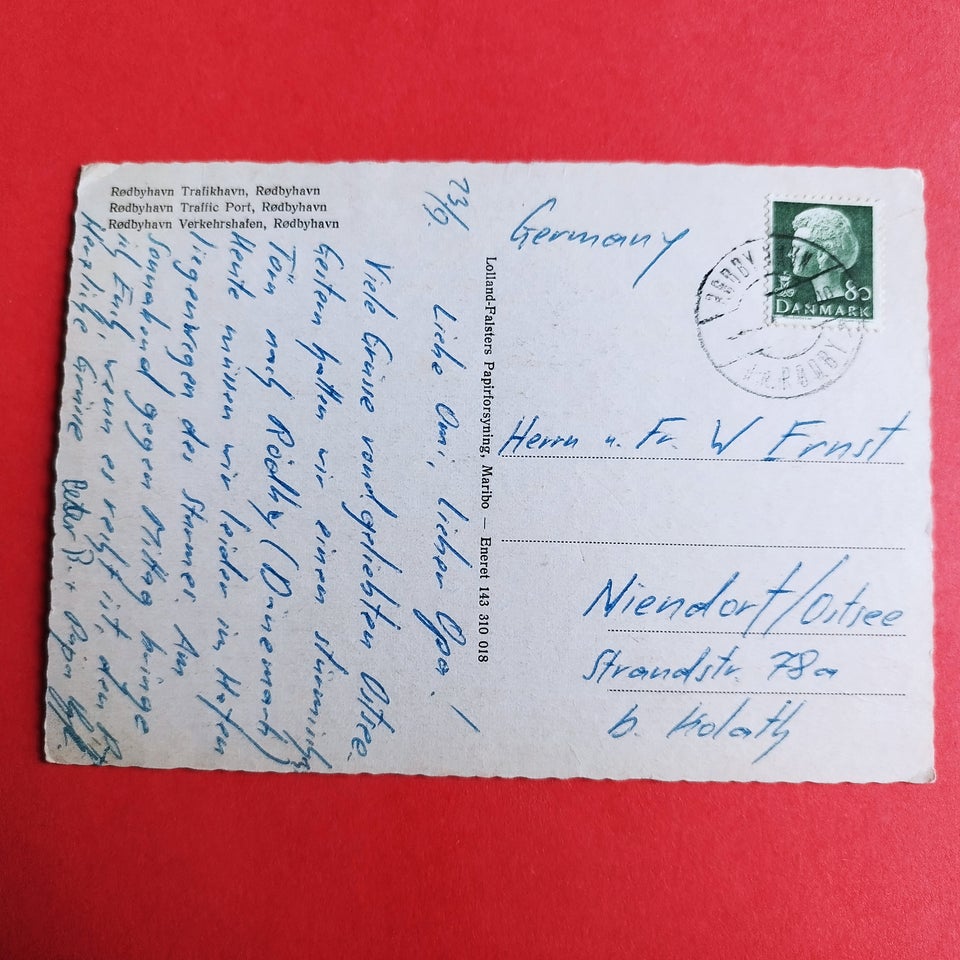 Rødbyhavn Trafikhavn, Rødbyhavn
Rødbyhavn Traffic Port, Rødbyhavn
Rødbyhavn Verkehrshafen, Rødbyhavn
23/9.
Liebe Omi, lieber Opa!
Viele Grüsse von d. geliebten Ostsee.
Gestern hatten wir einen stürmischen
Törn nach Rödby (Dänemark)
Heute müssen wir leider im Hafen
liegen wegen des Sturmes. Am
Sonnabend gegen Mittag bringe
ich Euch, wenn es recht ist, den
Herzliche Grüsse Peter B. +
Lolland-Falsters Papirforsyning, Maribo — Eneret 143 310 018
Germany
80
DANMARK
RØDBY
Herrn u. Fr. W Ernst
Niendorf/Ostsee
Strandstr. 78a
b. Kolath